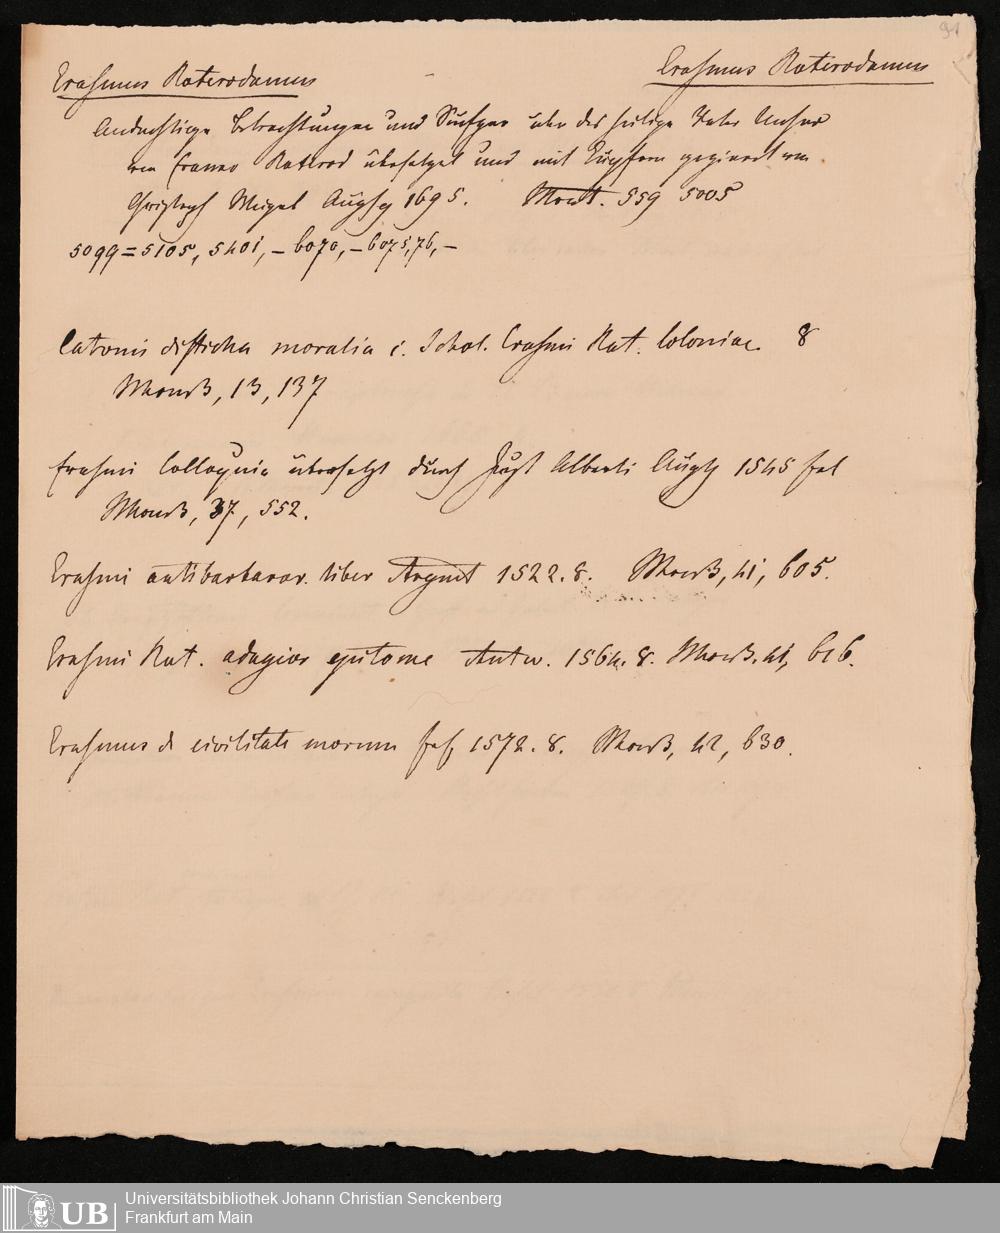 91
Erasmus Roterodamus Erasmus Roterodamus
Andächtige Betrachtungen und Seufzer über das heilige Vater Unser
von Erasmo Roterod übersetzet und mit Kupfern gezieret von
Christoph Weigel Augsp 1695. Mont. 559 5005
5099=5105, 5401, – 6070, – 6075, 76, –
Catonis disticha moralia c. Schol. Erasmi Rot. Coloniae 8
13, 137
Erasmi Colloquia übersetzt durch Just Alberti Augsp 1545 fol
37, 552.
Erasmi antibarbaror. liber Argent 1522. 8. 41, 605.
Erasmi Rot. adagior epitome Antw. 1564. 8. 41, 616.
Erasmus de civilitate morum 1572. 8. 42, 630.
UB
Universitätsbibliothek Johann Christian Senckenberg
Frankfurt am Main